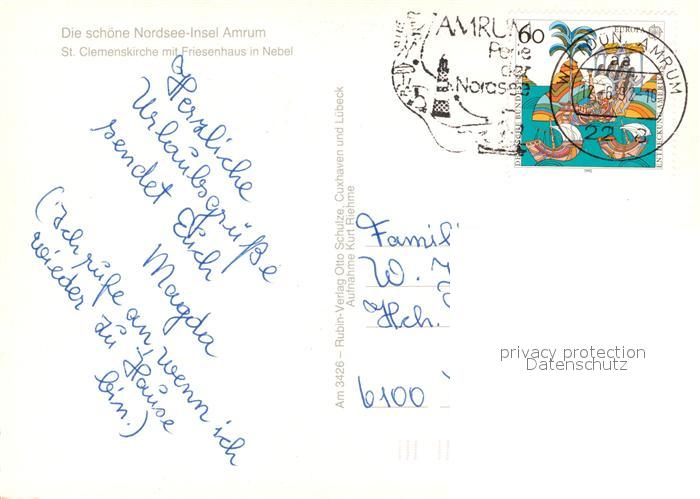 Die schöne Nordsee-Insel Amrum
St. Clemenskirche mit Friesenhaus in Nebel
Herzliche
Urlaubsgrüße
sendet Euch
Magda
(Ich rufe an, wenn ich
wieder zu Hause
bin.)
Am 3426 – Rubin-Verlag Otto Schulze, Cuxhaven und Lübeck
Aufnahme Kurt Riehme
AMRUM
Perle
der
Nordsee
60
EUROPA
DEUTSCHE BUNDESPOST
ENTDECKUNG AMERIKAS
1992
WITTDÜN, AMRUM
12.-6.92-18
22
Famili
W.
Hch.
6100
privacy protection
Datenschutz